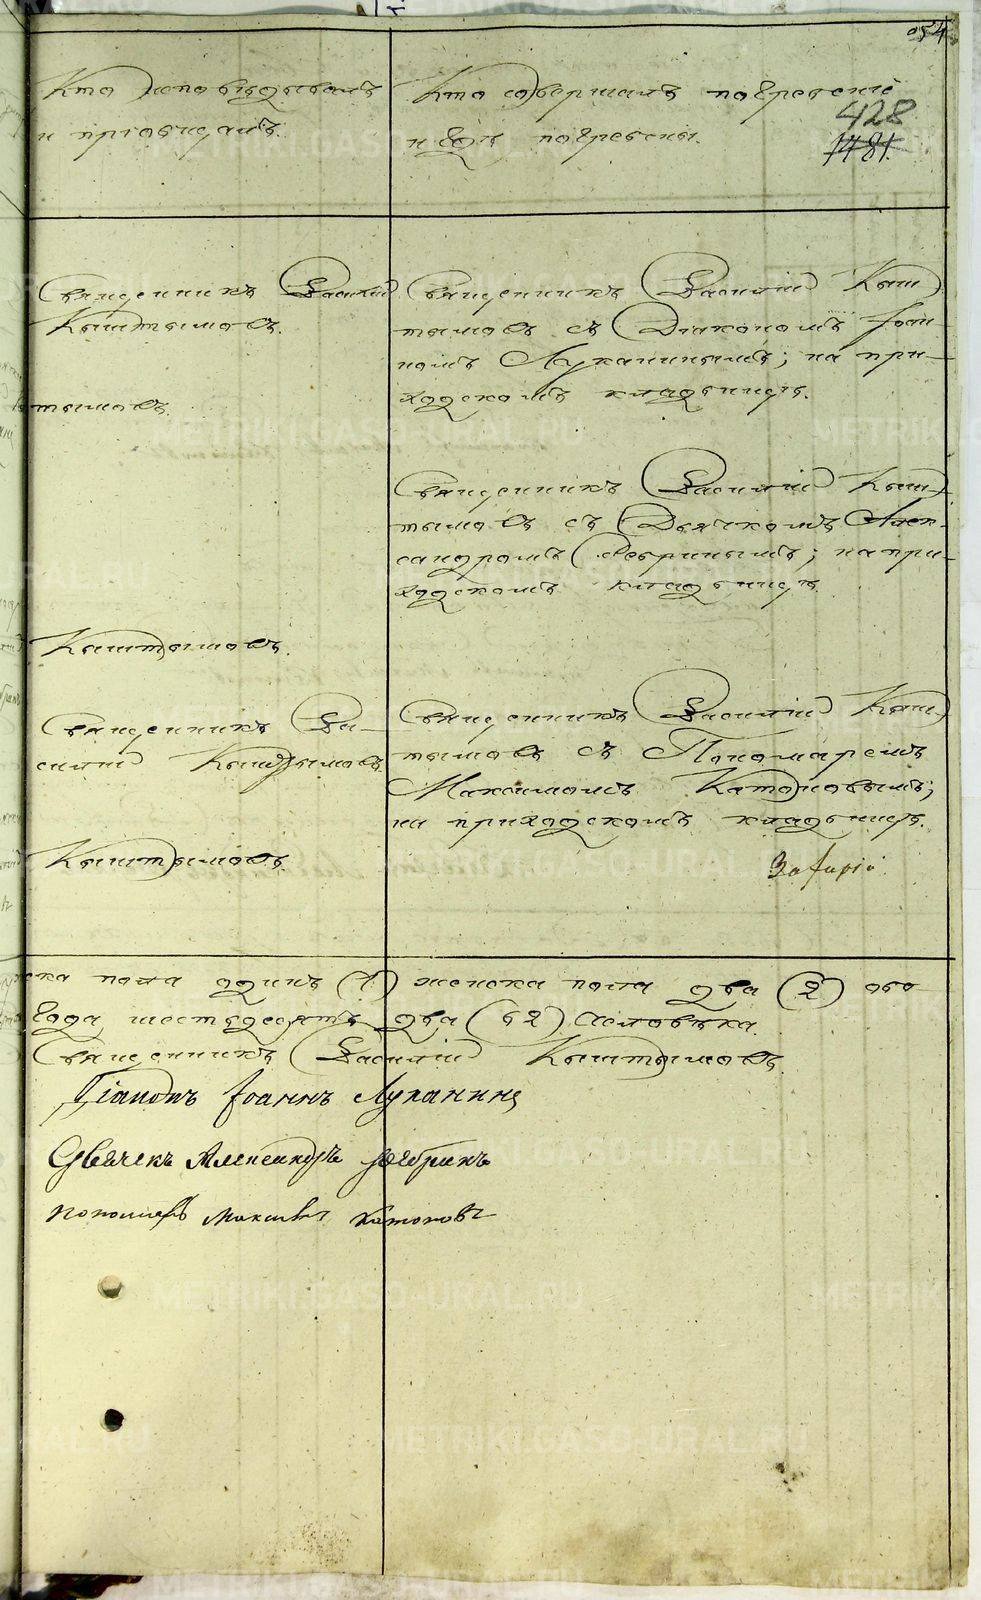 054
Кто исповѣдывалъ
и приобщалъ.
Кто совершалъ погребеніе
и гдѣ погребены.
428
1481.
Священникъ Василій
Кыштымовъ.
тымовъ.
Священникъ Василій Кыш-
тымовъ съ Діакономъ Іоан-
номъ Луканинымъ; на при-
ходскомъ кладбищѣ.
Священникъ Василій Кыш-
тымовъ съ Дьячкомъ Алек-
сандромъ Ребринымъ; на при-
ходскомъ кладбищѣ.
Кыштымовъ.
Священникъ Ва-
силій Кыштымовъ
Священникъ Василій Кыш-
тымовъ съ Пономаремъ
Максимомъ Катоновымъ;
на приходскомъ кладбищѣ.
Кыштымовъ.
ска пола одинъ (1) женска пола два (2) обо
года шестьдесятъ два (62) человѣка.
Священникъ Василій Кыштымовъ.
Діаконъ Іоаннъ Луканинъ
Дьячекъ Александръ Ребринъ
Пономарь Максимъ Катоновъ
METRIKI.GASO-URAL.RU